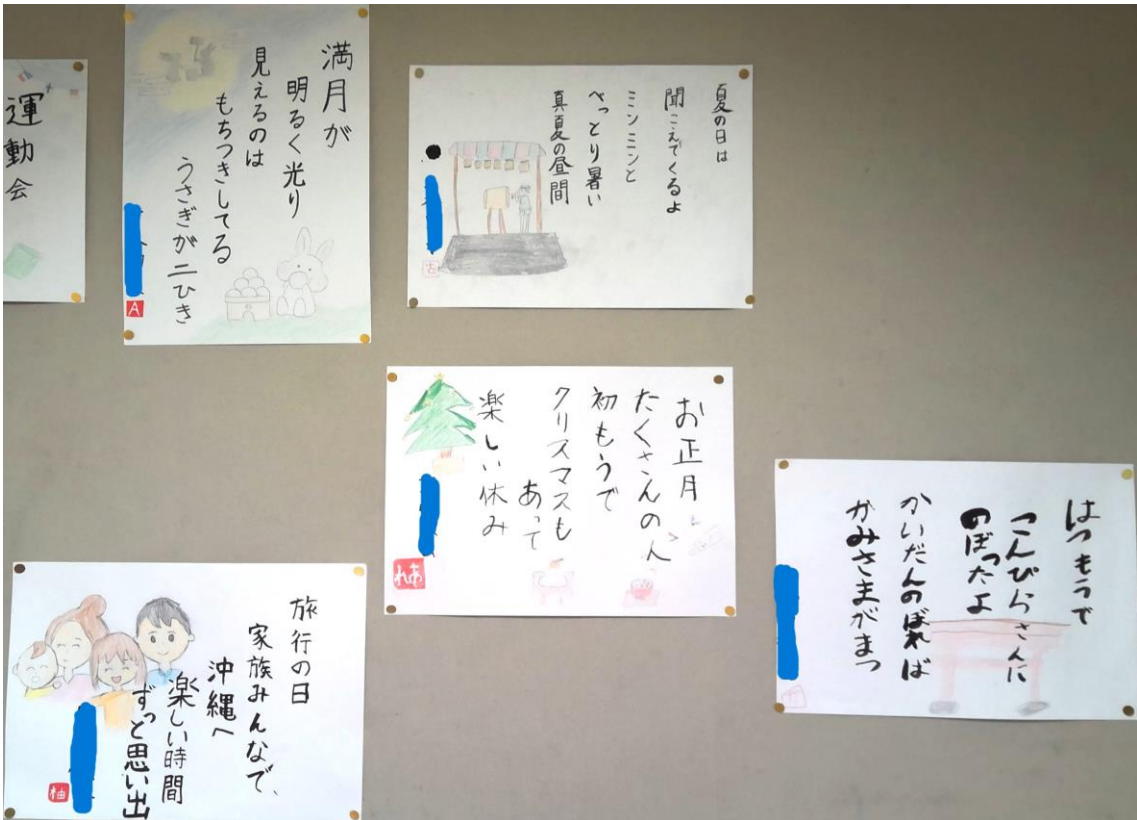 運動会
満月が
明るく光り
見えるのは
もちつきしてる
うさぎが二ひき
A
夏の日は
聞こえてくるよ
ミンミンと
べっとり暑い
真夏の昼間
古
お正月
たくさんの人
初もうで
クリスマスも
あって
楽しい休み
あれ
はつもうで
こんぴらさんに
のぼったよ
かいだんのぼれば
かみさまがまつ
旅行の日
家族みんなで、
沖縄へ
楽しい時間
ずっと思い出
柚